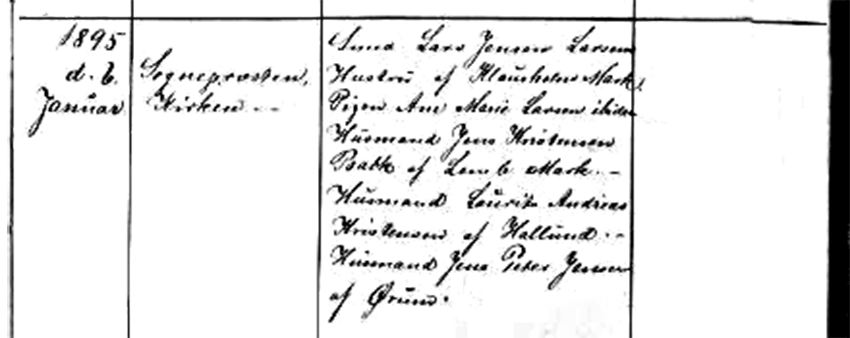 1895
d. 6.
Januar
Sognepræsten,
Kirken --
Lars Jensen Larsens
Hustru af Klausholm Mark,
Pigen Ane Marie Larsen ibidem
Husmand Jens Kristensen
Bak af Mark. --
Husmand Laurits Andreas
Kristensen af Hallund. --
Husmand Jens Peter Jensen
af Ørum.